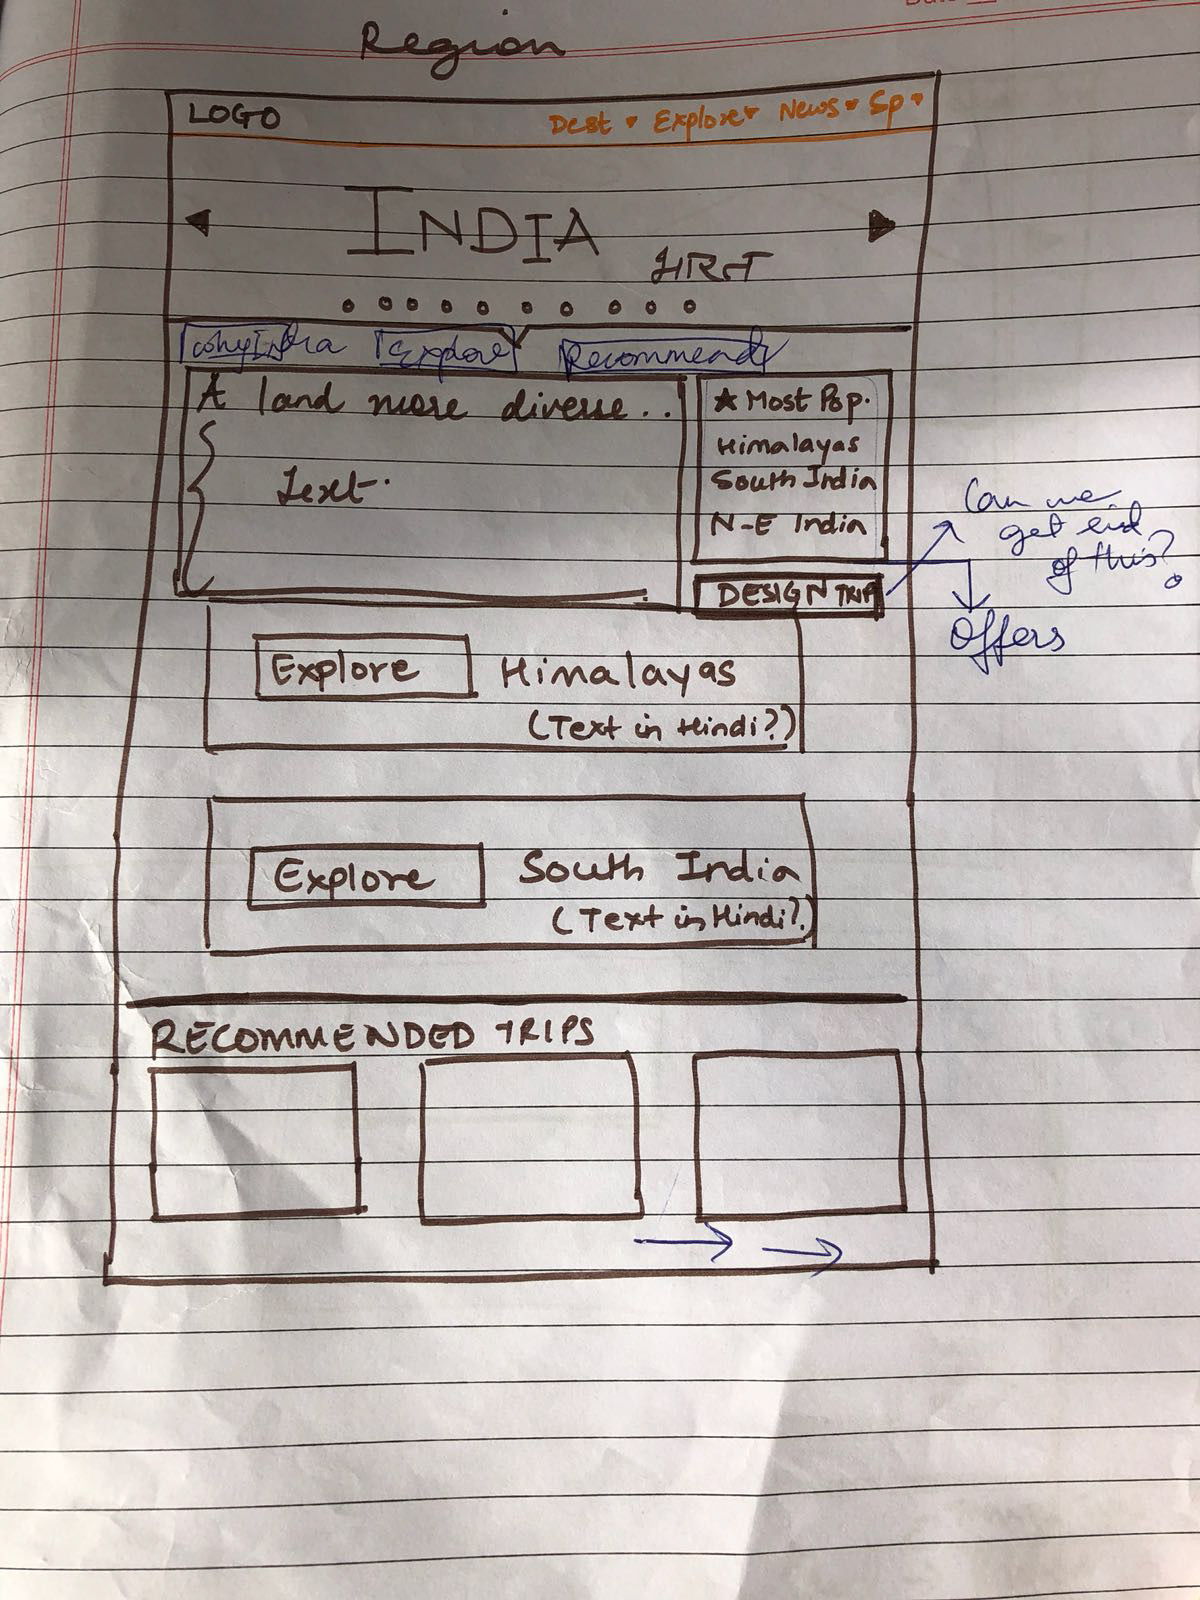 Region
LOGO Dest ▾ Explore ▾ News ▾ Sp ▾
INDIA
Explore Recommend
A land more diverse ..
Text.
★ Most Pop.
Himalayas
South India
N-E India
DESIGN TRIP
Can we
get rid
of this?
Offers
Explore Himalayas
(Text in Hindi?)
Explore South India
(Text in Hindi?)
RECOMMENDED TRIPS